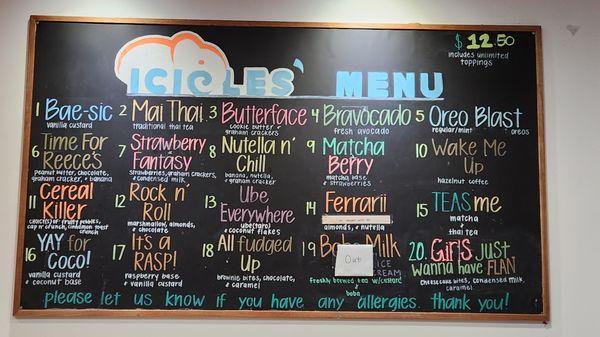 ICICLES' MENU
$12.50
includes unlimited
toppings
1 Bae-sic
vanilla custard
2 Mai Thai
traditional thai tea
3 Butterface
cookie butter &
graham crackers
4 Bravocado
fresh avocado
5 Oreo Blast
regular/mint oreos
6 Time For
Reece's
peanut butter, chocolate,
graham cracker, & banana
7 Strawberry
Fantasy
strawberries, graham crackers,
& condensed milk
8 Nutella n'
Chill
banana, nutella,
& graham cracker
9 Matcha
Berry
matcha base
& strawberries
10 Wake Me
Up
hazelnut coffee
11 Cereal
Killer
choice(s) of: fruity pebbles,
cap n' crunch, cinnamon toast
crunch
12 Rock n'
Roll
marshmallow, almonds,
& chocolate
13 Ube
Everywhere
ube(taro)
& coconut flakes
14 Ferrarii
almonds, & nutella
15 TEAS me
matcha
&
thai tea
16 YAY for
Coco!
vanilla custard
& coconut base
17 It's a
RASP!
raspberry base
& vanilla custard
18 All fudged
Up
brownie bites, chocolate,
& caramel
19 Boba Milk
Out
ICE
CREAM
freshly brewed tea w/custard
&
boba
20. Girls Just
Wanna have FLAN
cheesecake bites, condensed milk,
caramel
please let us know if you have any allergies. thank you!